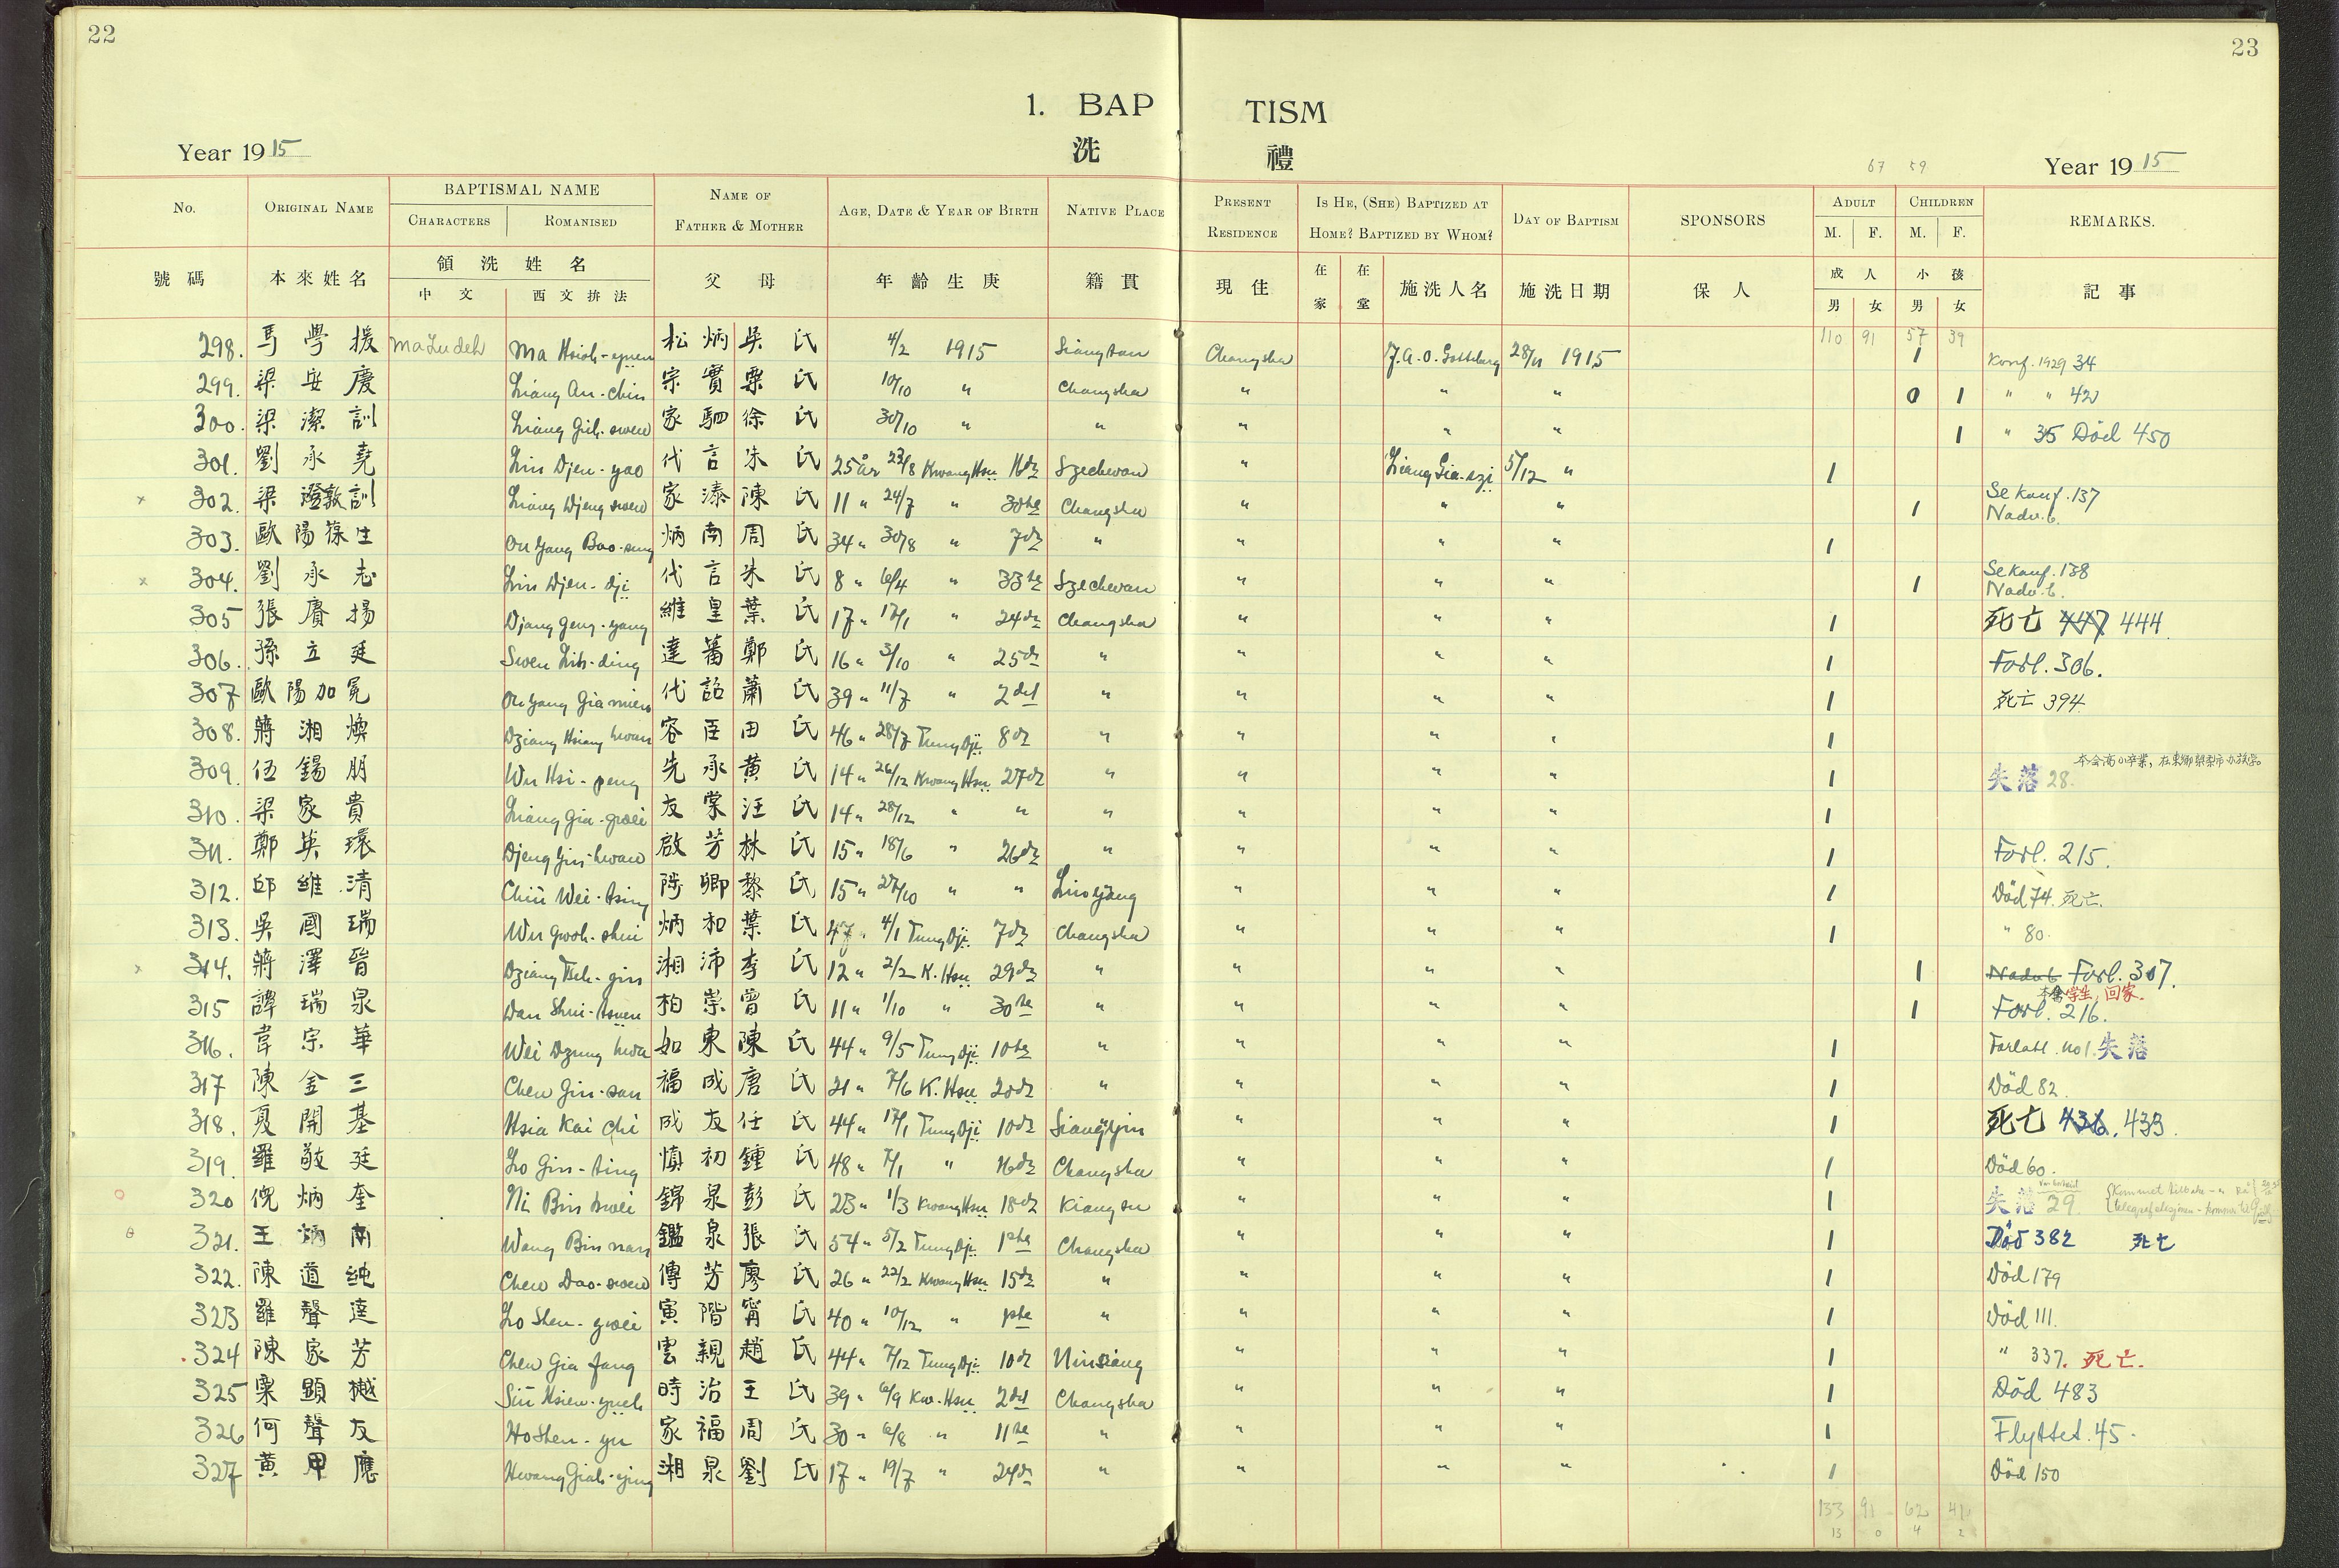 22
23
1. BAP TISM
洗 禮
Year 1915
67 59
Year 1915
No. ORIGINAL NAME BAPTISMAL NAME CHARACTERS ROMANISED NAME OF FATHER & MOTHER AGE, DATE & YEAR OF BIRTH NATIVE PLACE PRESENT RESIDENCE IS HE, (SHE) BAPTIZED AT HOME? BAPTIZED BY WHOM? DAY OF BAPTISM SPONSORS ADULT M. F. CHILDREN M. F. REMARKS.
號碼 本來姓名 領洗姓名 中文 西文拚法 父母 年齡生庚 籍貫 現住 在家 在堂 施洗人名 施洗日期 保人 成人 男 女 小孩 男 女 記事
110 91 57 39
298. 馬學援 Ma Lu deh Ma Hsioh-yuen 松炳 吳氏 4/2 1915 Siangtan Changsha J.A.O. Gottberg 28/11 1915 1 Konf. 1929 34
299. 梁安慶 Liang An-chin 宗實 栗氏 10/10 " Changsha " " " 0 1 " " 42
300. 梁潔訓 Liang Gih-swen 家駟 徐氏 30/10 " " " " " 1 " 35 Död 450
301. 劉承堯 Liu Djen-yao 代言 朱氏 25 år 23/8 Kwang Hsu 16de Szechwan " Liang Gia-szi 5/12 " 1
x 302. 梁澄敦訓 Liang Djeng swen 家溱 陳氏 11 " 24/7 " 30te Changsha " " " 1 Se konf. 137 Nadv. b.
303. 歐陽葆生 Ou Yang Bao-seng 炳南 周氏 34 " 30/8 " 7de " " " " 1
x 304. 劉承志 Liu Djen-dji 代言 朱氏 8 " 6/4 " 33te Szechwan " " " 1 Se konf. 138 Nadv. b.
305 張賡揚 Djang Geng-yang 維皇 葉氏 17 " 17/1 " 24de Changsha " " " 1 死亡 447 444.
306. 孫立廷 Swen Lih-ding 達蕃 鄭氏 16 " 3/10 " 25de " " " " 1 Forl. 306.
307 歐陽加冕 Ou Yang Gia mien 代詔 蕭氏 39 " 11/7 " 2del " " " " 1 死亡 394
308. 蔣湘煥 Dziang Hsiang hwan 容臣 田氏 46 " 28/7 Tung Dji 8de " " " " 1
309. 伍錫朋 Wu Hsi-peng 先承 黃氏 14 " 26/12 Kwang Hsu 27de " " " " 1 失落 28.
310. 梁家貴 Liang Gia-gwei 友棠 汪氏 14 " 28/12 " " " " " " 1
311. 鄭英環 Djeng Yin-hwan 啟芳 林氏 15 " 18/6 " 26de " " " " 1 Forl. 215.
312. 邱維清 Chiü Wei-tsing 卿 黎氏 15 " 27/10 " " Liuyang " " " 1 Död 74. 死亡.
313. 吳國瑞 Wu Gwoh-shui 炳和 葉氏 47 " 4/1 Tung Dji 7de Changsha " " " 1 " 80.
x 314. 蔣澤晉 Dziang Tseh-gin 湘沛 李氏 12 " 2/2 K. Hsu 29de " " " " 1 Nadv. b. Forl. 307.
315 譚瑞泉 Dan Shui-tswen 柏崇 曾氏 11 " 1/10 " 30te " " " " 1 本會學生, 回家. Forl. 216.
316. 韋宗華 Wei Dzung hwa 如東 陳氏 44 " 9/5 Tung Dji 10te " " " " 1 Forlatl. no 1. 失落
317 陳金三 Chen Gin-san 福成 唐氏 21 " 7/6 K. Hsu 20de " " " " 1 Död 82
318. 夏開基 Hsia Kai Chi 成友 任氏 44 " 17/1 Tung Dji 10de Siangyin " " " 1 死亡 436. 433.
319. 羅敬廷 Lo Gin-ting 慎初 鍾氏 48 " 7/1 " 16de Changsha " " " 1 Död 60.
320 倪炳奎 Ni Bin kwei 錦泉 彭氏 23 " 1/3 Kwang Hsu 18de Kiangsu " " " 1 失落 29.
321. 王炳南 Wang Bin nan 鑑泉 張氏 54 " 5/2 Tung Dji 1ste Changsha " " " 1 Död 382 死亡
322. 陳道純 Chen Dao-swen 傳芳 廖氏 26 " 22/2 Kwang Hsu 15de " " " " 1 Död 179
323 羅聲達 Lo Shen-gwei 寅階 甯氏 40 " 10/12 " 1ste " " " " 1 Död 111.
324 陳家芳 Chen Gia fang 雲親 趙氏 44 " 7/12 Tung Dji 10de Ninsiang " " " 1 " 337. 死亡.
325 栗顯樾 Siü Hsien-yueh 時治 王氏 39 " 6/9 Kw. Hsu 2del Changsha " " " 1 Död 483
326 何聲友 Ho Shen-yu 家福 周氏 30 " 6/8 " 11te " " " " 1 Flyttet. 45.
327 黃甲應 Hwang Giah-ying 湘泉 劉氏 17 " 19/7 " 24de " " " " 1 Död 150
133 91 62 41
13 0 4 2